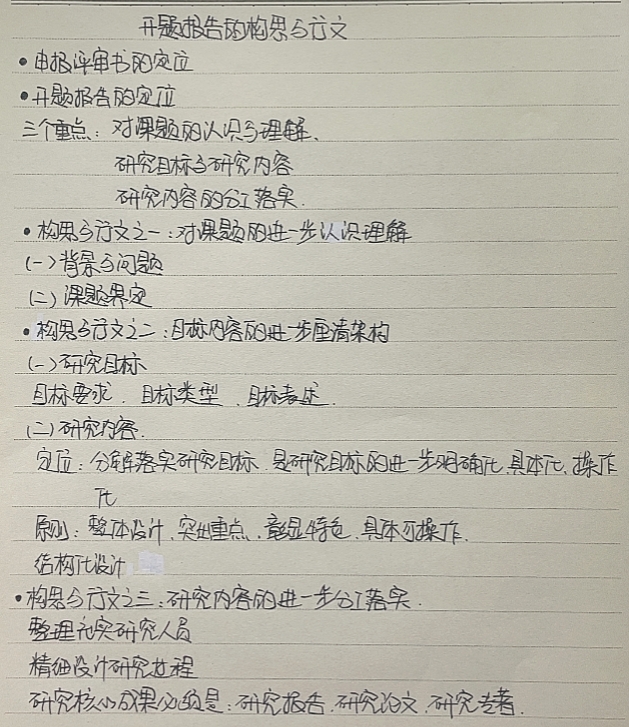 开题报告的构思与行文
• 申报评审书的定位
• 开题报告的定位
三个重点：对课题的认识与理解、
研究目标与研究内容
研究内容的分工落实.
• 构思与行文之一：对课题的进一步认识理解
(一)背景与问题
(二)课题界定
• 构思与行文之二：目标内容的进一步厘清架构
(一)研究目标
目标要求、目标类型、目标表述.
(二)研究内容.
定位：分解落实研究目标、是研究目标的进一步明确化、具体化、操作
化
原则：整体设计、突出重点、彰显特色、具体可操作.
结构化设计
• 构思与行文之三：研究内容的进一步分工落实.
整理充实研究人员
精细设计研究过程
研究核心成果必须是：研究报告、研究论文、研究专著.